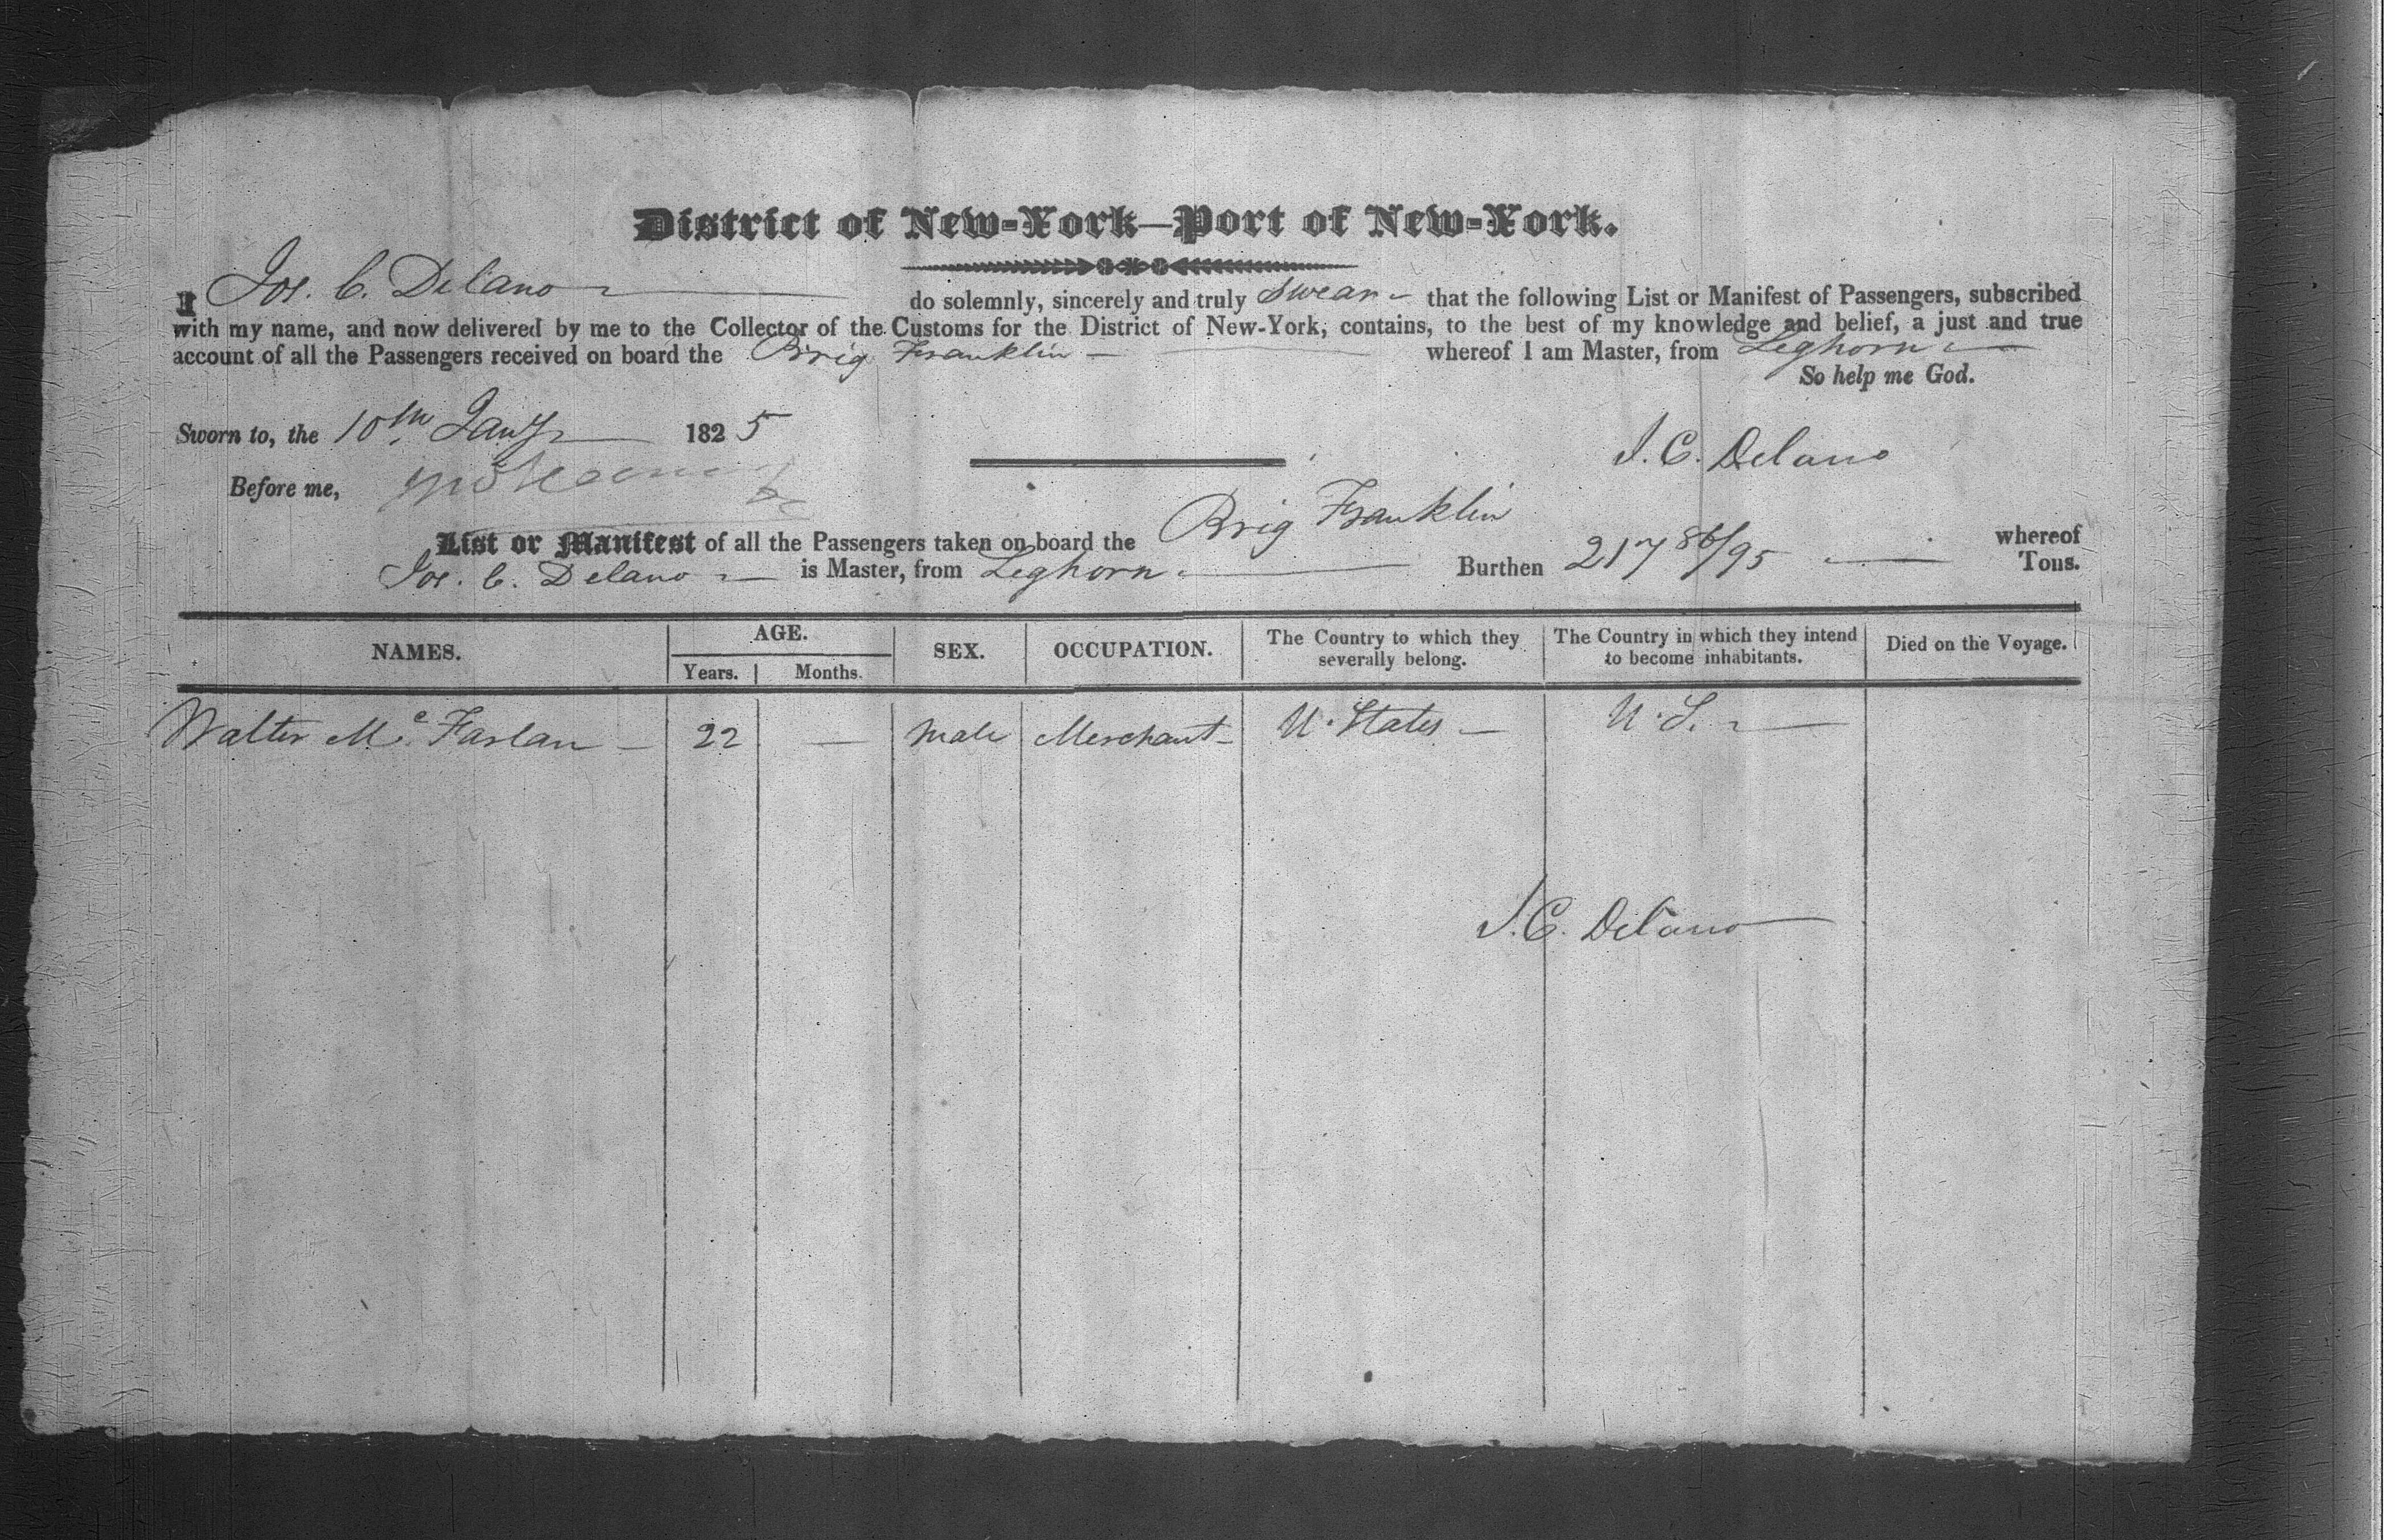 District of New-York—Port of New-York.
I Jos. C. Delano do solemnly, sincerely and truly swear that the following List or Manifest of Passengers, subscribed
with my name, and now delivered by me to the Collector of the Customs for the District of New-York, contains, to the best of my knowledge and belief, a just and true
account of all the Passengers received on board the Brig Franklin — whereof I am Master, from Leghorn
So help me God.
Sworn to, the 10th Jany 1825
J. C. Delano
Before me,
List or Manifest of all the Passengers taken on board the Brig Franklin whereof
Jos. C. Delano is Master, from Leghorn Burthen 217 86/95 Tons.
NAMES. AGE. SEX. OCCUPATION. The Country to which they severally belong. The Country in which they intend to become inhabitants. Died on the Voyage.
Years. Months.
Walter Mc Farlan — 22 — Male Merchant — U. States — U. S. —
J. C. Delano